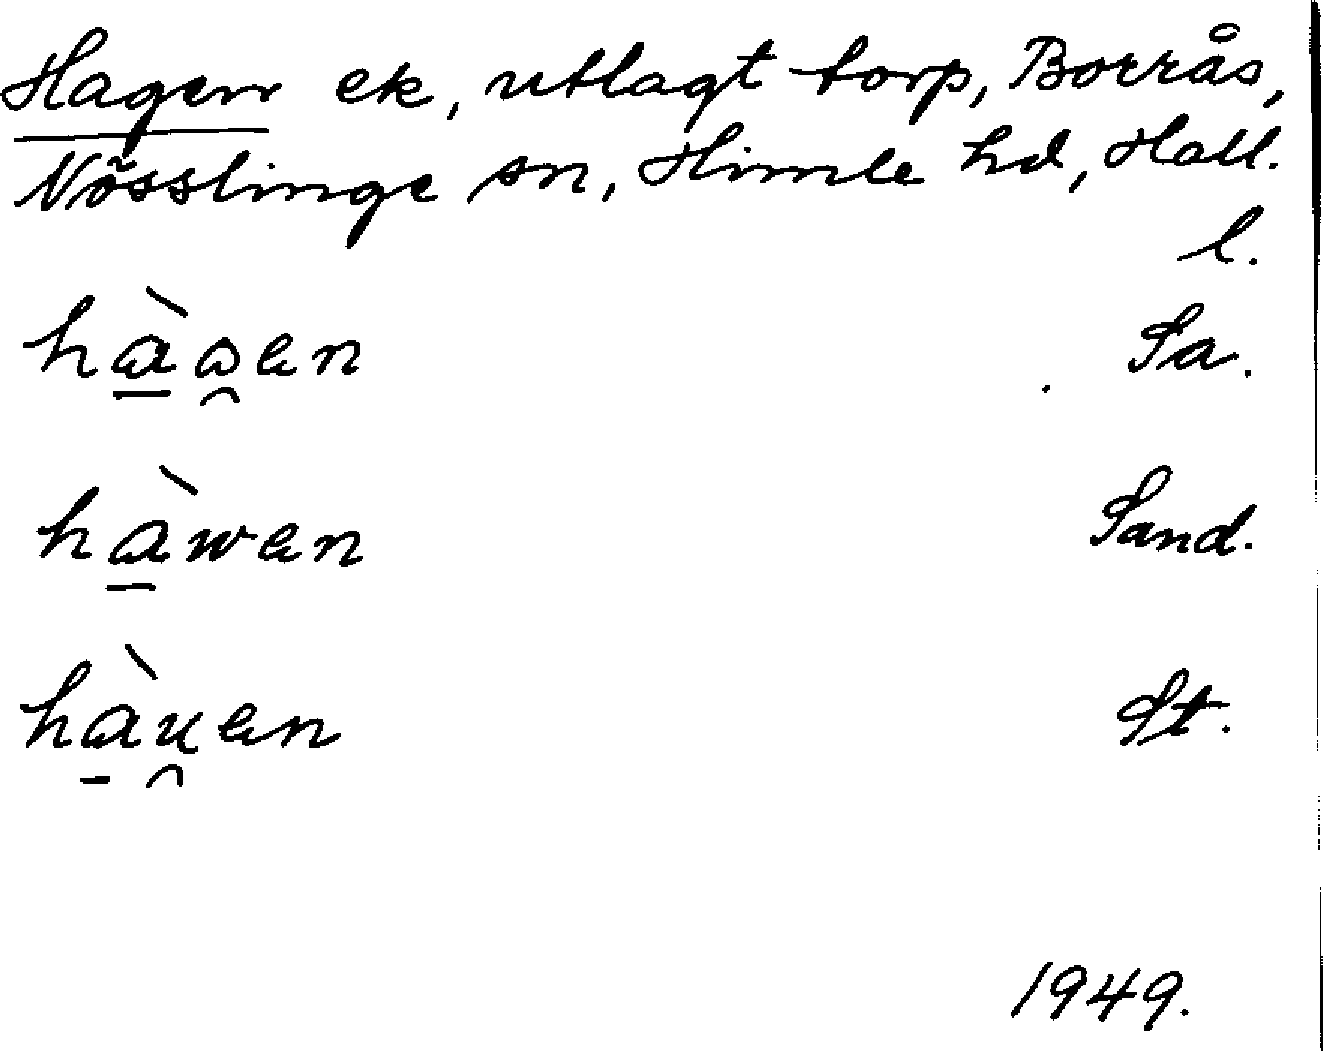 Hagen ek, utlagt torp, Bocrås,
Nösslinge sn, Himle hd, Hall.
l.
hàωen Sa.
hàwen Sand.
hàu̯en St.
1949.